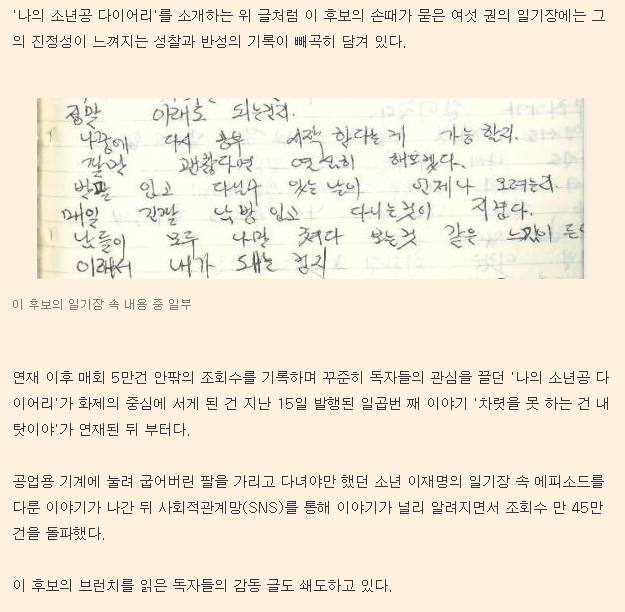 '나의 소년공 다이어리'를 소개하는 위 글처럼 이 후보의 손때가 묻은 여섯 권의 일기장에는 그
의 진정성이 느껴지는 성찰과 반성의 기록이 빼곡히 담겨 있다.
정말 이래도 되는건지.
나중에 다시 공부 시작 한다는게 가능 할까.
정말 괜찮다면 열심히 해보겠다.
반팔 입고 다닐수 있는 날이 언제나 오려는지.
매일 긴팔 남방 입고 다니는것이 지겹다.
남들이 모두 나만 쳐다 보는것 같은 느낌이 든
이래서 내가 되는 건지
이 후보의 일기장 속 내용 중 일부
연재 이후 매회 5만건 안팎의 조회수를 기록하며 꾸준히 독자들의 관심을 끌던 '나의 소년공 다
이어리'가 화제의 중심에 서게 된 건 지난 15일 발행된 일곱번 째 이야기 '차렷을 못 하는 건 내
탓이야'가 연재된 뒤 부터다.
공업용 기계에 눌려 굽어버린 팔을 가리고 다녀야만 했던 소년 이재명의 일기장 속 에피소드를
다룬 이야기가 나간 뒤 사회적관계망(SNS)를 통해 이야기가 널리 알려지면서 조회수 만 45만
건을 돌파했다.
이 후보의 브런치를 읽은 독자들의 감동 글도 쇄도하고 있다.